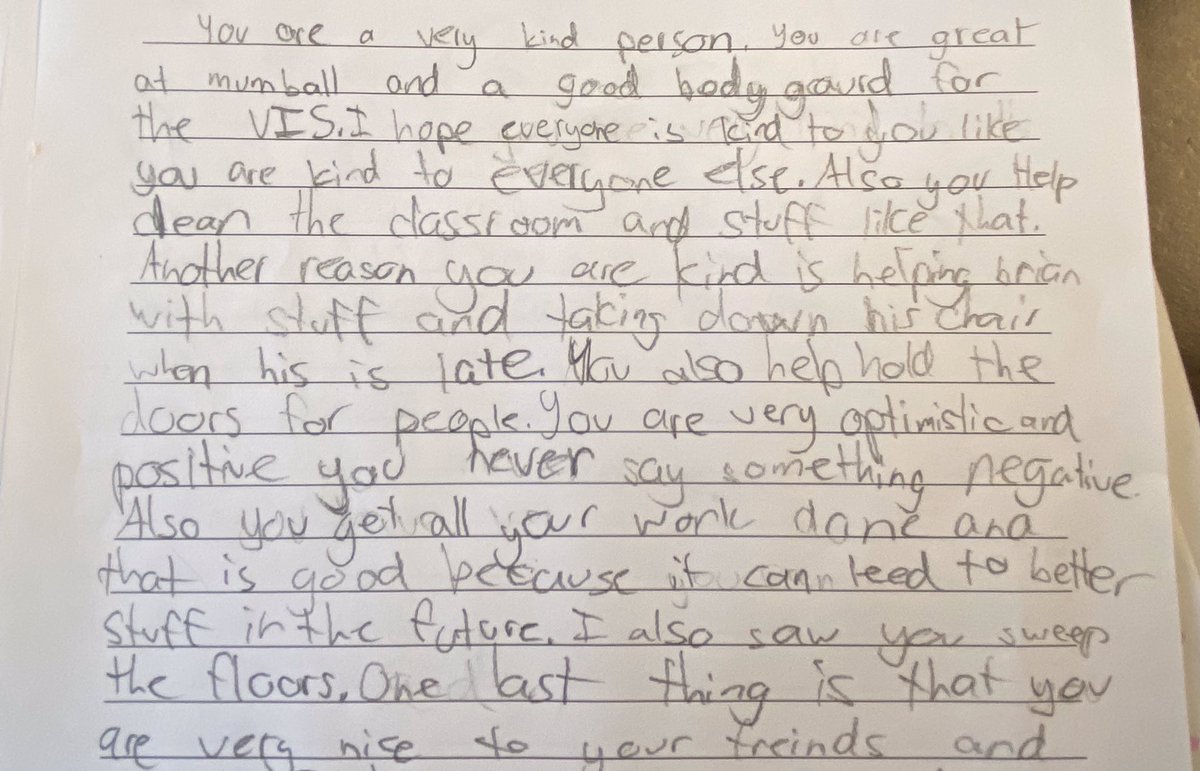 You are a very kind person. You are great
at mumball and a good body gaurd for
the VIS. I hope everyone is kind to you like
you are kind to everyone else. Also you Help
clean the classroom and stuff like that.
Another reason you are kind is helping brian
with stuff and taking down his chair
when his is late. You also help hold the
doors for people. You are very optimistic and
positive you never say something negative.
Also you get all your work done and
that is good because it can leed to better
stuff in the future. I also saw you sweep
the floors. One last thing is that you
are very nice to your freinds and